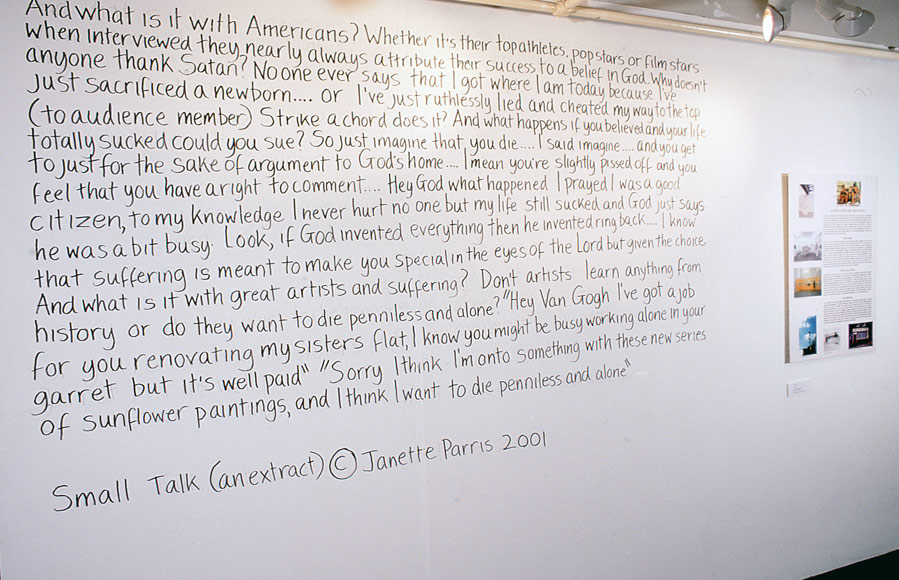 And what is it with Americans? Whether it's their top athletes, pop stars or film stars
when interviewed they nearly always attribute their success to a belief in God. Why doesn't
anyone thank Satan? No one ever says that I got where I am today because I've
just sacrificed a newborn.... or I've just ruthlessly lied and cheated my way to the top
(to audience member) Strike a chord does it? And what happens if you believed and your life
totally sucked could you sue? So just imagine that you die.... I said imagine.... and you get
to just for the sake of argument to God's home.... I mean you're slightly pissed off and you
feel that you have a right to comment.... Hey God what happened I prayed I was a good
citizen, to my knowledge I never hurt no one but my life still sucked and God just says
he was a bit busy. Look, if God invented everything then he invented ring back.... I know
that suffering is meant to make you special in the eyes of the Lord but given the choice.
And what is it with great artists and suffering? Don't artists learn anything from
history or do they want to die penniless and alone? "Hey Van Gogh I've got a job
for you renovating my sisters flat, I know you might be busy working alone in your
garret but it's well paid" "Sorry I think I'm onto something with these new series
of sunflower paintings, and I think I want to die penniless and alone"
Small Talk (an extract) © Janette Parris 2001